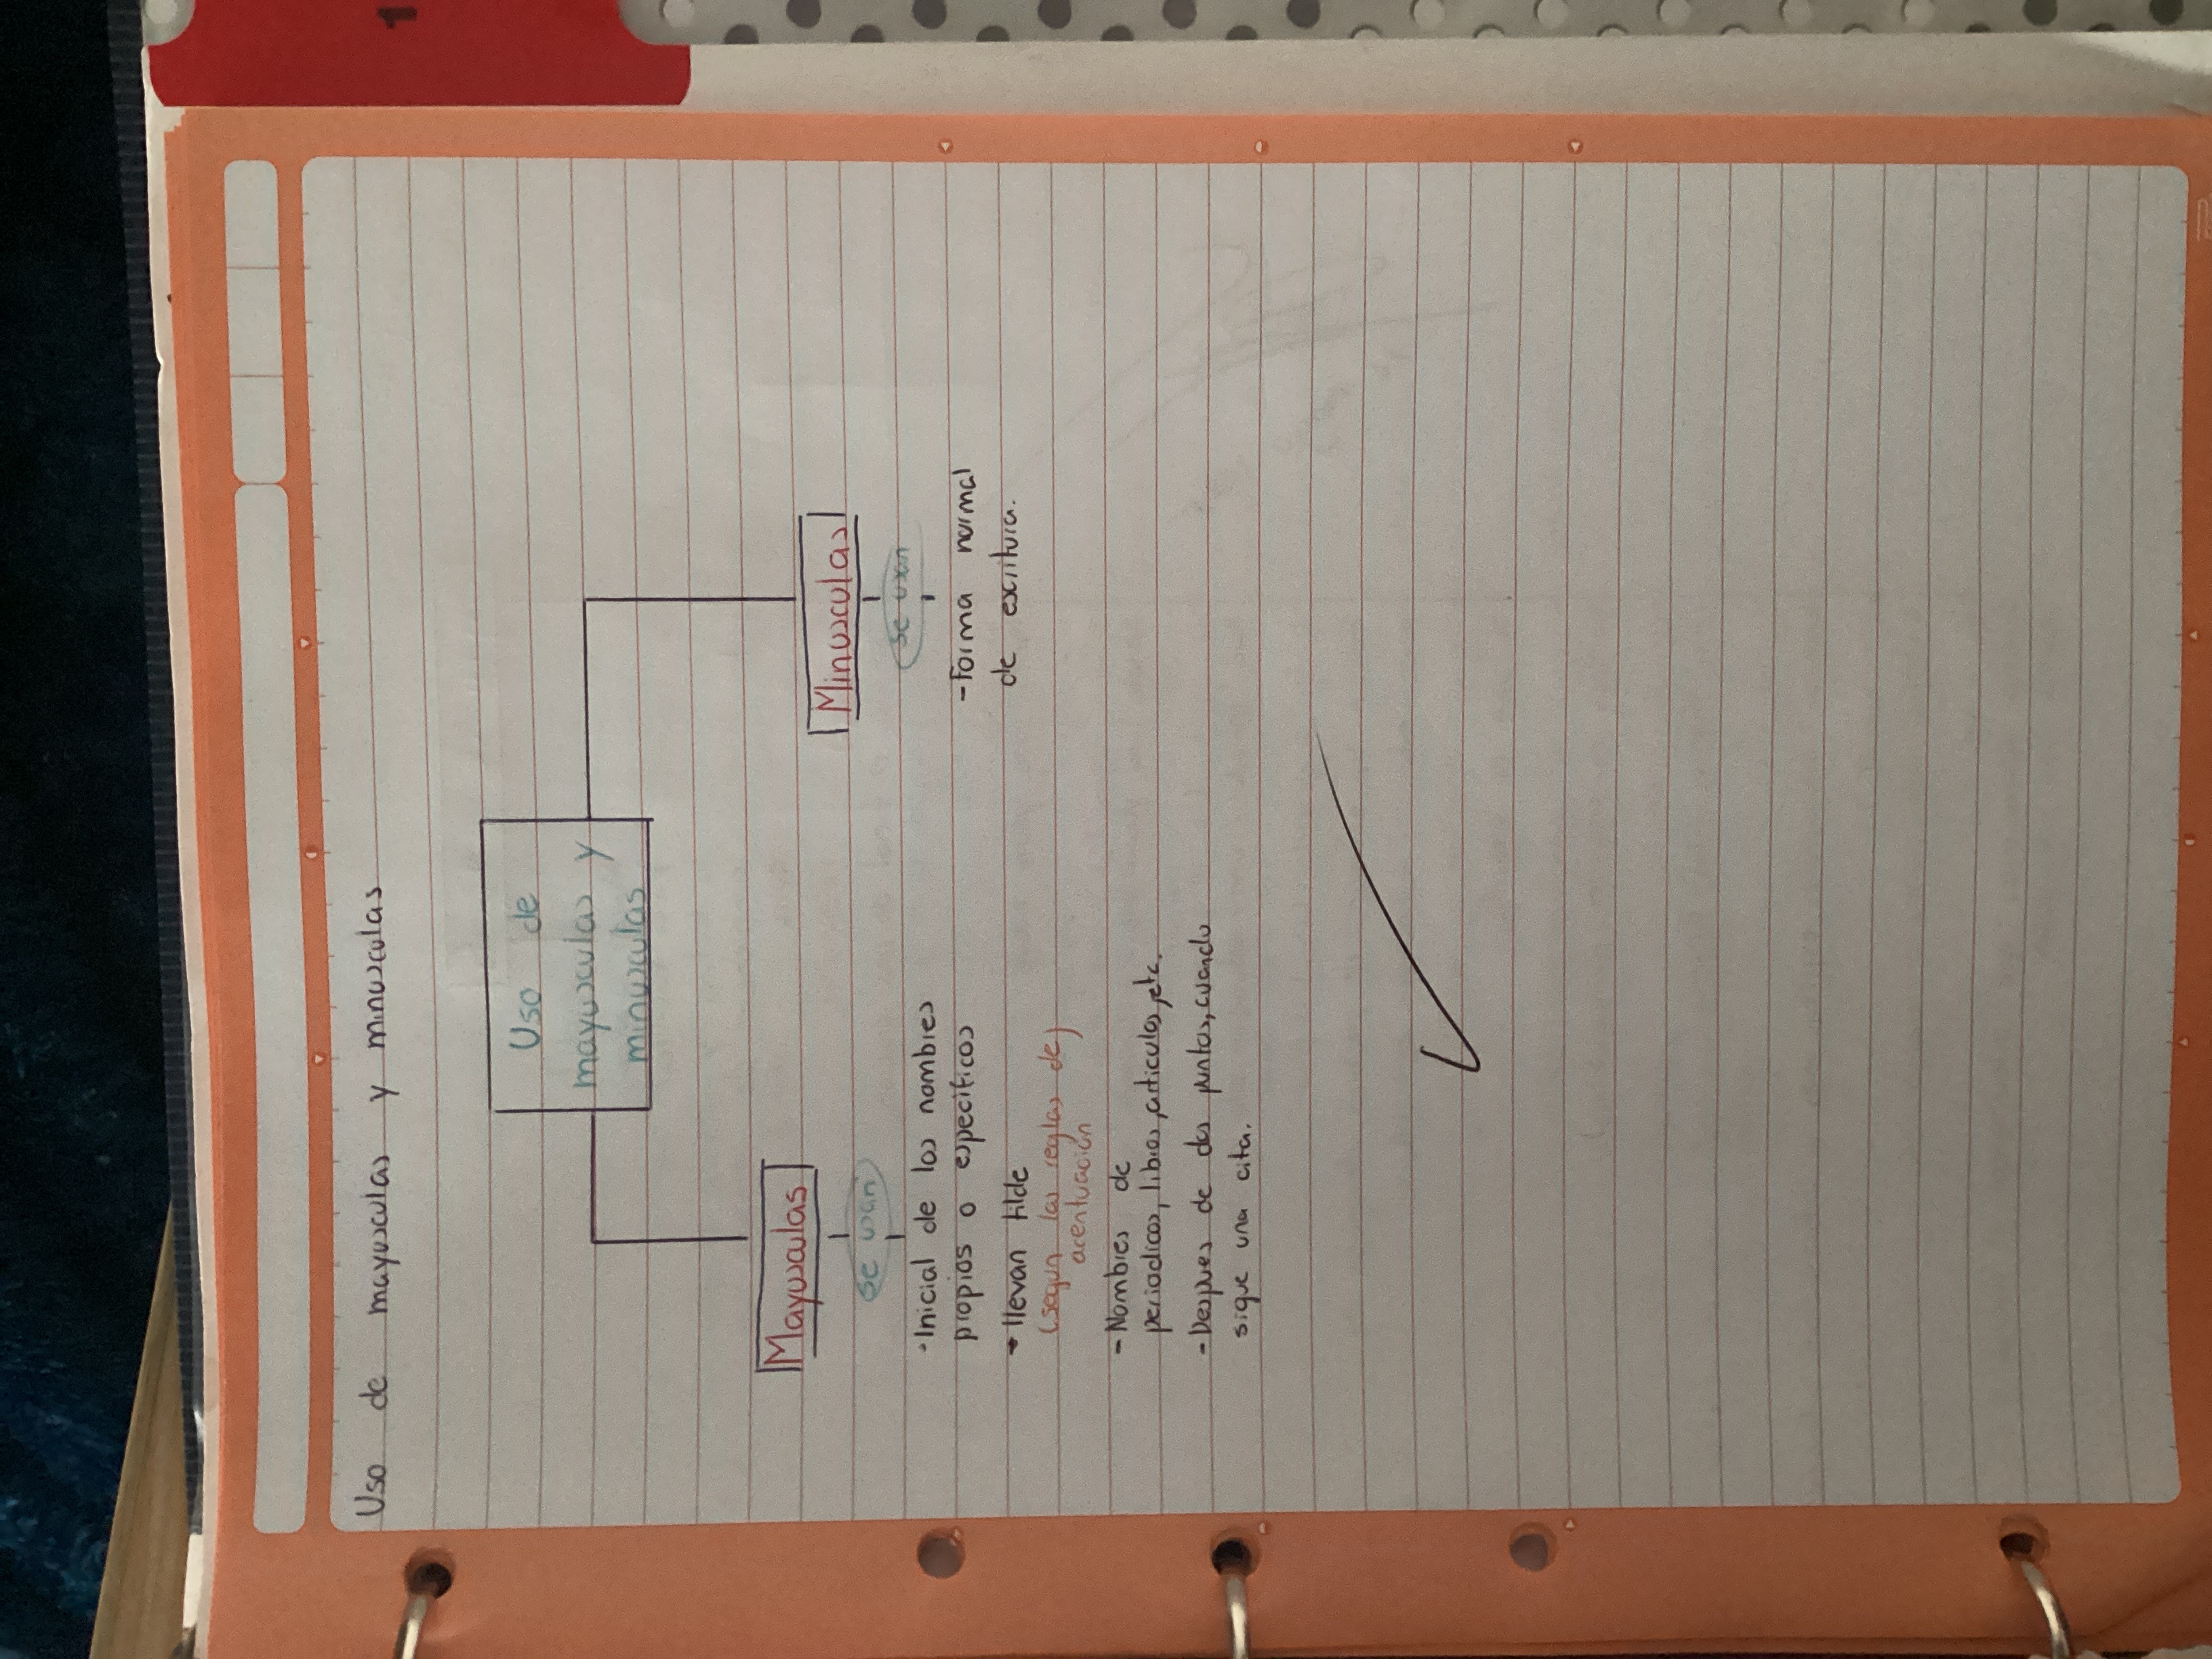 1
Uso de mayusculas y minusculas
Uso de
mayusculas y
minusculas
Mayusculas
se usan
- Inicial de los nombres
propios o especificos
- llevan tilde
(segun las reglas de)
acentuación
- Nombres de
periodicos, libros, articulos, etc.
- Despues de dos puntos, cuando
sigue una cita.
Minusculas
se usan
- Forma normal
de escritura.